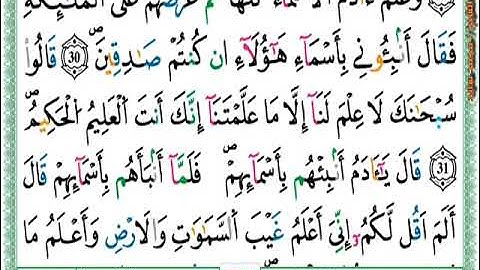 وَعَلَّمَ ءَادَمَ الْأَسْمَاءَ كُلَّهَا ثُمَّ عَرَضَهُمْ عَلَى الْمَلَٰٓئِكَةِ
فَقَالَ أَنۢبِـُٔونِي بِأَسْمَآءِ هَٰٓؤُلَآءِ ان كُنتُمْ صَٰدِقِينَ 30 قَالُوا۟
سُبْحَٰنَكَ لَا عِلْمَ لَنَآ إِلَّا مَا عَلَّمْتَنَآ إِنَّكَ أَنتَ الْعَلِيمُ الْحَكِيمُ
31 قَالَ يَٰٓـَٔادَمُ أَنۢبِئْهُم بِأَسْمَآئِهِمْ فَلَمَّآ أَنۢبَأَهُم بِأَسْمَآئِهِمْ قَالَ
أَلَمْ أَقُل لَّكُمُۥٓ إِنِّيَ أَعْلَمُ غَيْبَ السَّمَٰوَٰتِ وَالَارْضِ وَأَعْلَمُ مَا